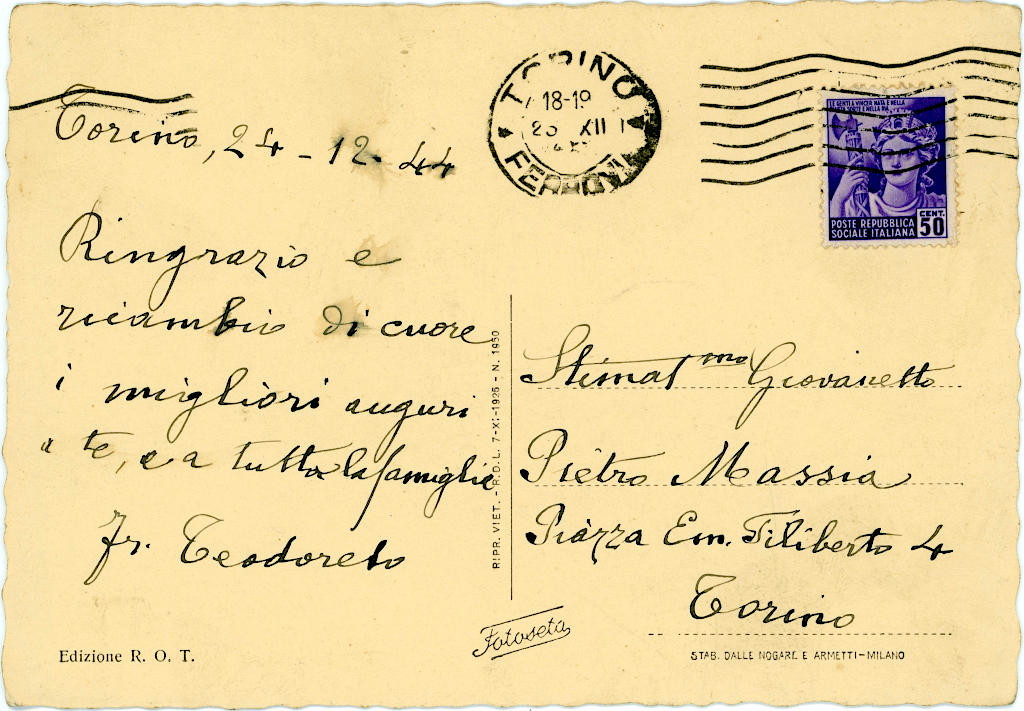 TORINO
18-19
XII
FERROVIA
LE GENTI A VINCER NATA E NELLA
POSTE REPUBBLICA
SOCIALE ITALIANA
CENT. 50
Torino, 24 - 12 - 44
Ringrazio e
ricambio di cuore
i migliori auguri
a te, e a tutta la famiglia
Fr. Teodoreto
Edizione R. O. T.
RIPR. VIET. - R.D.L. 7-XI-1925 - N. 1950
Fotoseta
Stimat mo Giovanetto
Pietro Massia
Piazza Em. Filiberto 4
Torino
STAB. DALLE NOGARE E ARMETTI-MILANO